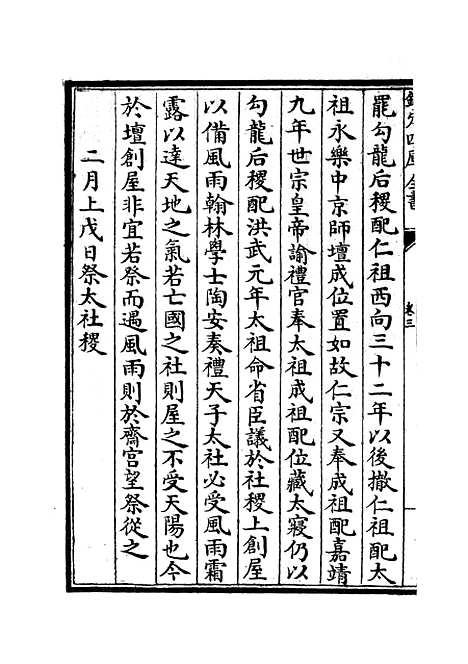 欽定四庫全書
卷三
罷勾龍后稷配仁祖西向三十二年以後撤仁祖配太
祖永樂中京師壇成位置如故仁宗又奉成祖配嘉靖
九年世宗皇帝諭禮官奉太祖成祖配位藏太寢仍以
勾龍后稷配洪武元年太祖命省臣議於社稷上創屋
以備風雨翰林學士陶安奏禮天子太社必受風雨霜
露以達天地之氣若亡國之社則屋之不受天陽也今
於壇創屋非宜若祭而遇風雨則於齋宮望祭從之
二月上戊日祭太社稷